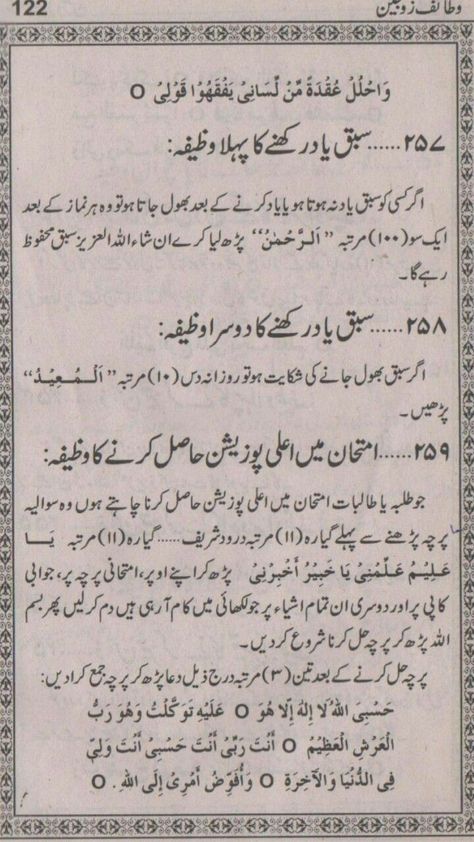 122
وظائف زوجین
وَاحْلُلْ عُقْدَةً مِّنْ لِّسَانِیْ یَفْقَهُوْا قَوْلِیْ O
۲۵۷......سبق یاد رکھنے کا پہلا وظیفہ:
اگر کسی کو سبق یاد نہ ہوتا ہو یا یاد کرنے کے بعد بھول جاتا ہو تو وہ ہر نماز کے بعد
ایک سو (۱۰۰) مرتبہ ”اَلرَّحْمٰنُ“ پڑھ لیا کرے ان شاء اللہ العزیز سبق محفوظ
رہے گا۔
۲۵۸......سبق یاد رکھنے کا دوسرا وظیفہ:
اگر سبق بھول جانے کی شکایت ہو تو روزانہ دس (۱۰) مرتبہ ”اَلْمُعِیْدُ“
پڑھیں۔
۲۵۹......امتحان میں اعلی پوزیشن حاصل کرنے کا وظیفہ:
جو طلبہ یا طالبات امتحان میں اعلی پوزیشن حاصل کرنا چاہتے ہوں وہ سوالیہ
پرچہ پڑھنے سے پہلے گیارہ (۱۱) مرتبہ درود شریف......گیارہ (۱۱) مرتبہ یَا
عَلِیْمُ عَلِّمْنِیْ یَا خَبِیْرُ اَخْبِرْنِیْ پڑھ کر اپنے اوپر، امتحانی پرچہ پر، جوابی
کاپی پر اور دوسری ان تمام اشیاء پر جو لکھائی میں کام آرہی ہیں دم کرلیں پھر بسم
اللہ پڑھ کر پرچہ حل کرنا شروع کردیں۔
پرچہ حل کرنے کے بعد تین (۳) مرتبہ درج ذیل دعا پڑھ کر پرچہ جمع کرادیں:
حَسْبِیَ اللهُ لَا اِلٰهَ اِلَّا هُوَ O عَلَیْهِ تَوَکَّلْتُ وَهُوَ رَبُّ
الْعَرْشِ الْعَظِیْمُ O اَنْتَ رَبِّیْ اَنْتَ حَسْبِیْ اَنْتَ وَلِیّ
فِی الدُّنْیَا وَالْآخِرَةِ O وَاُفَوِّضُ اَمْرِیْ اِلَی اللهِ . O